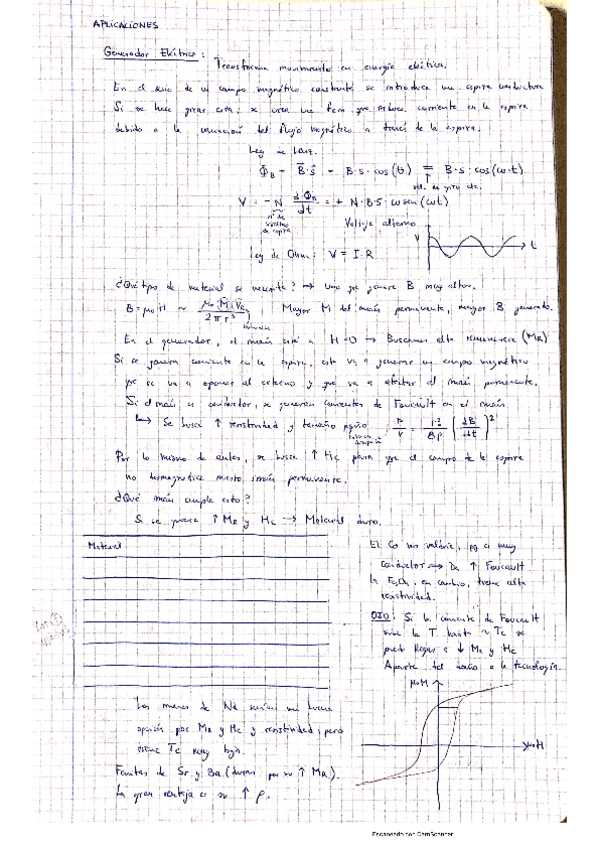 APLICACIONES
Generador Eléctrico: Transforma movimiento en energía eléctrica.
En el seno de un campo magnético constante se introduce una espira conductora
Si se hace girar esta, se crea una fem que induce corriente en la espira
debido a la variación del flujo magnético a través de la espira.
Ley de Lenz.
Φ_B = B·S = B·S·cos(θ) = B·S·cos(ω·t)
vel. de giro cte.
V = -N dΦ_B/dt = + N·B·S·ω sen(ωt)
nº de vueltas de espira
Voltaje alterno
V
t
Ley de Ohm: V = I·R
¿Qué tipo de material se necesita? → Uno que genere B muy altos.
Mayor M del imán permanente, mayor B generado.
En el generador, el imán está a H=0 → Buscamos alta remanencia (M_R)
Si se genera corriente en la espira, esta va a generar un campo magnético
que se va a oponer al externo y que va a afectar el imán permanente.
Si el imán es conductor, se generan corrientes de Foucault en el imán
↳ Se busca ↑ resistividad y tamaño pqño
Por lo mismo de antes, se busca ↑ Hc para que el campo de la espira
no desmagnetice nuestro imán permanente.
¿Qué imán cumple esto?
Si se quiere ↑ M_R y Hc → Material duro.
Material
El Co no valdría, pq es muy
conductor → Da ↑ Foucault
La en cambio, tiene alta
resistividad.
OJO: Si la corriente de Foucault
sube la T hasta ~ Tc se
puede llegar a ↓ M_R y Hc
Aparte del daño a la tecnología.
μ₀M
μ₀H
Los imanes de Nd serían una buena
opción por M_R y Hc y resistividad, pero
tiene Tc muy baja.
Ferritas de Sr y Ba (duras por su ↑ M_R).
La gran ventaja es su ↑ ρ.
Escaneado con CamScanner